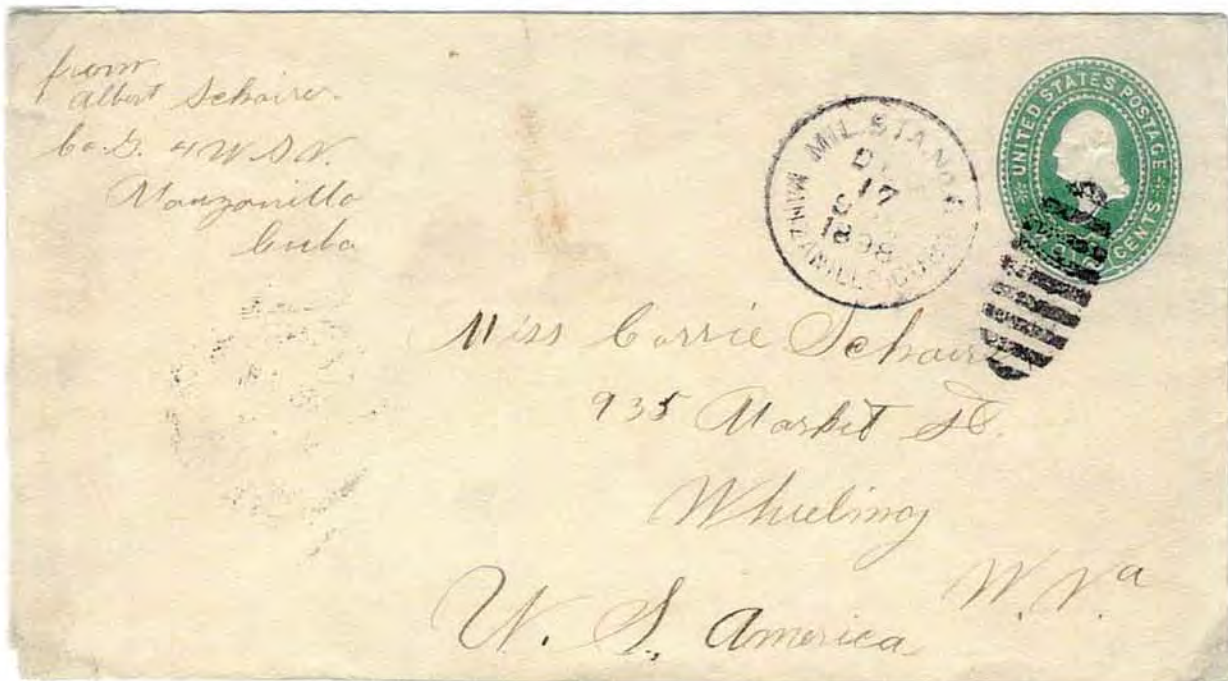 from
Albert Schairer
Co. G. 4 U.S.V.
Manzanillo
Cuba
MIL. STA. No.
17
1898
MANZANILLO, CUBA
UNITED STATES POSTAGE
TWO CENTS
Miss Carrie Schairer
935 Market St.
Wheeling
W. Va
U. S. America